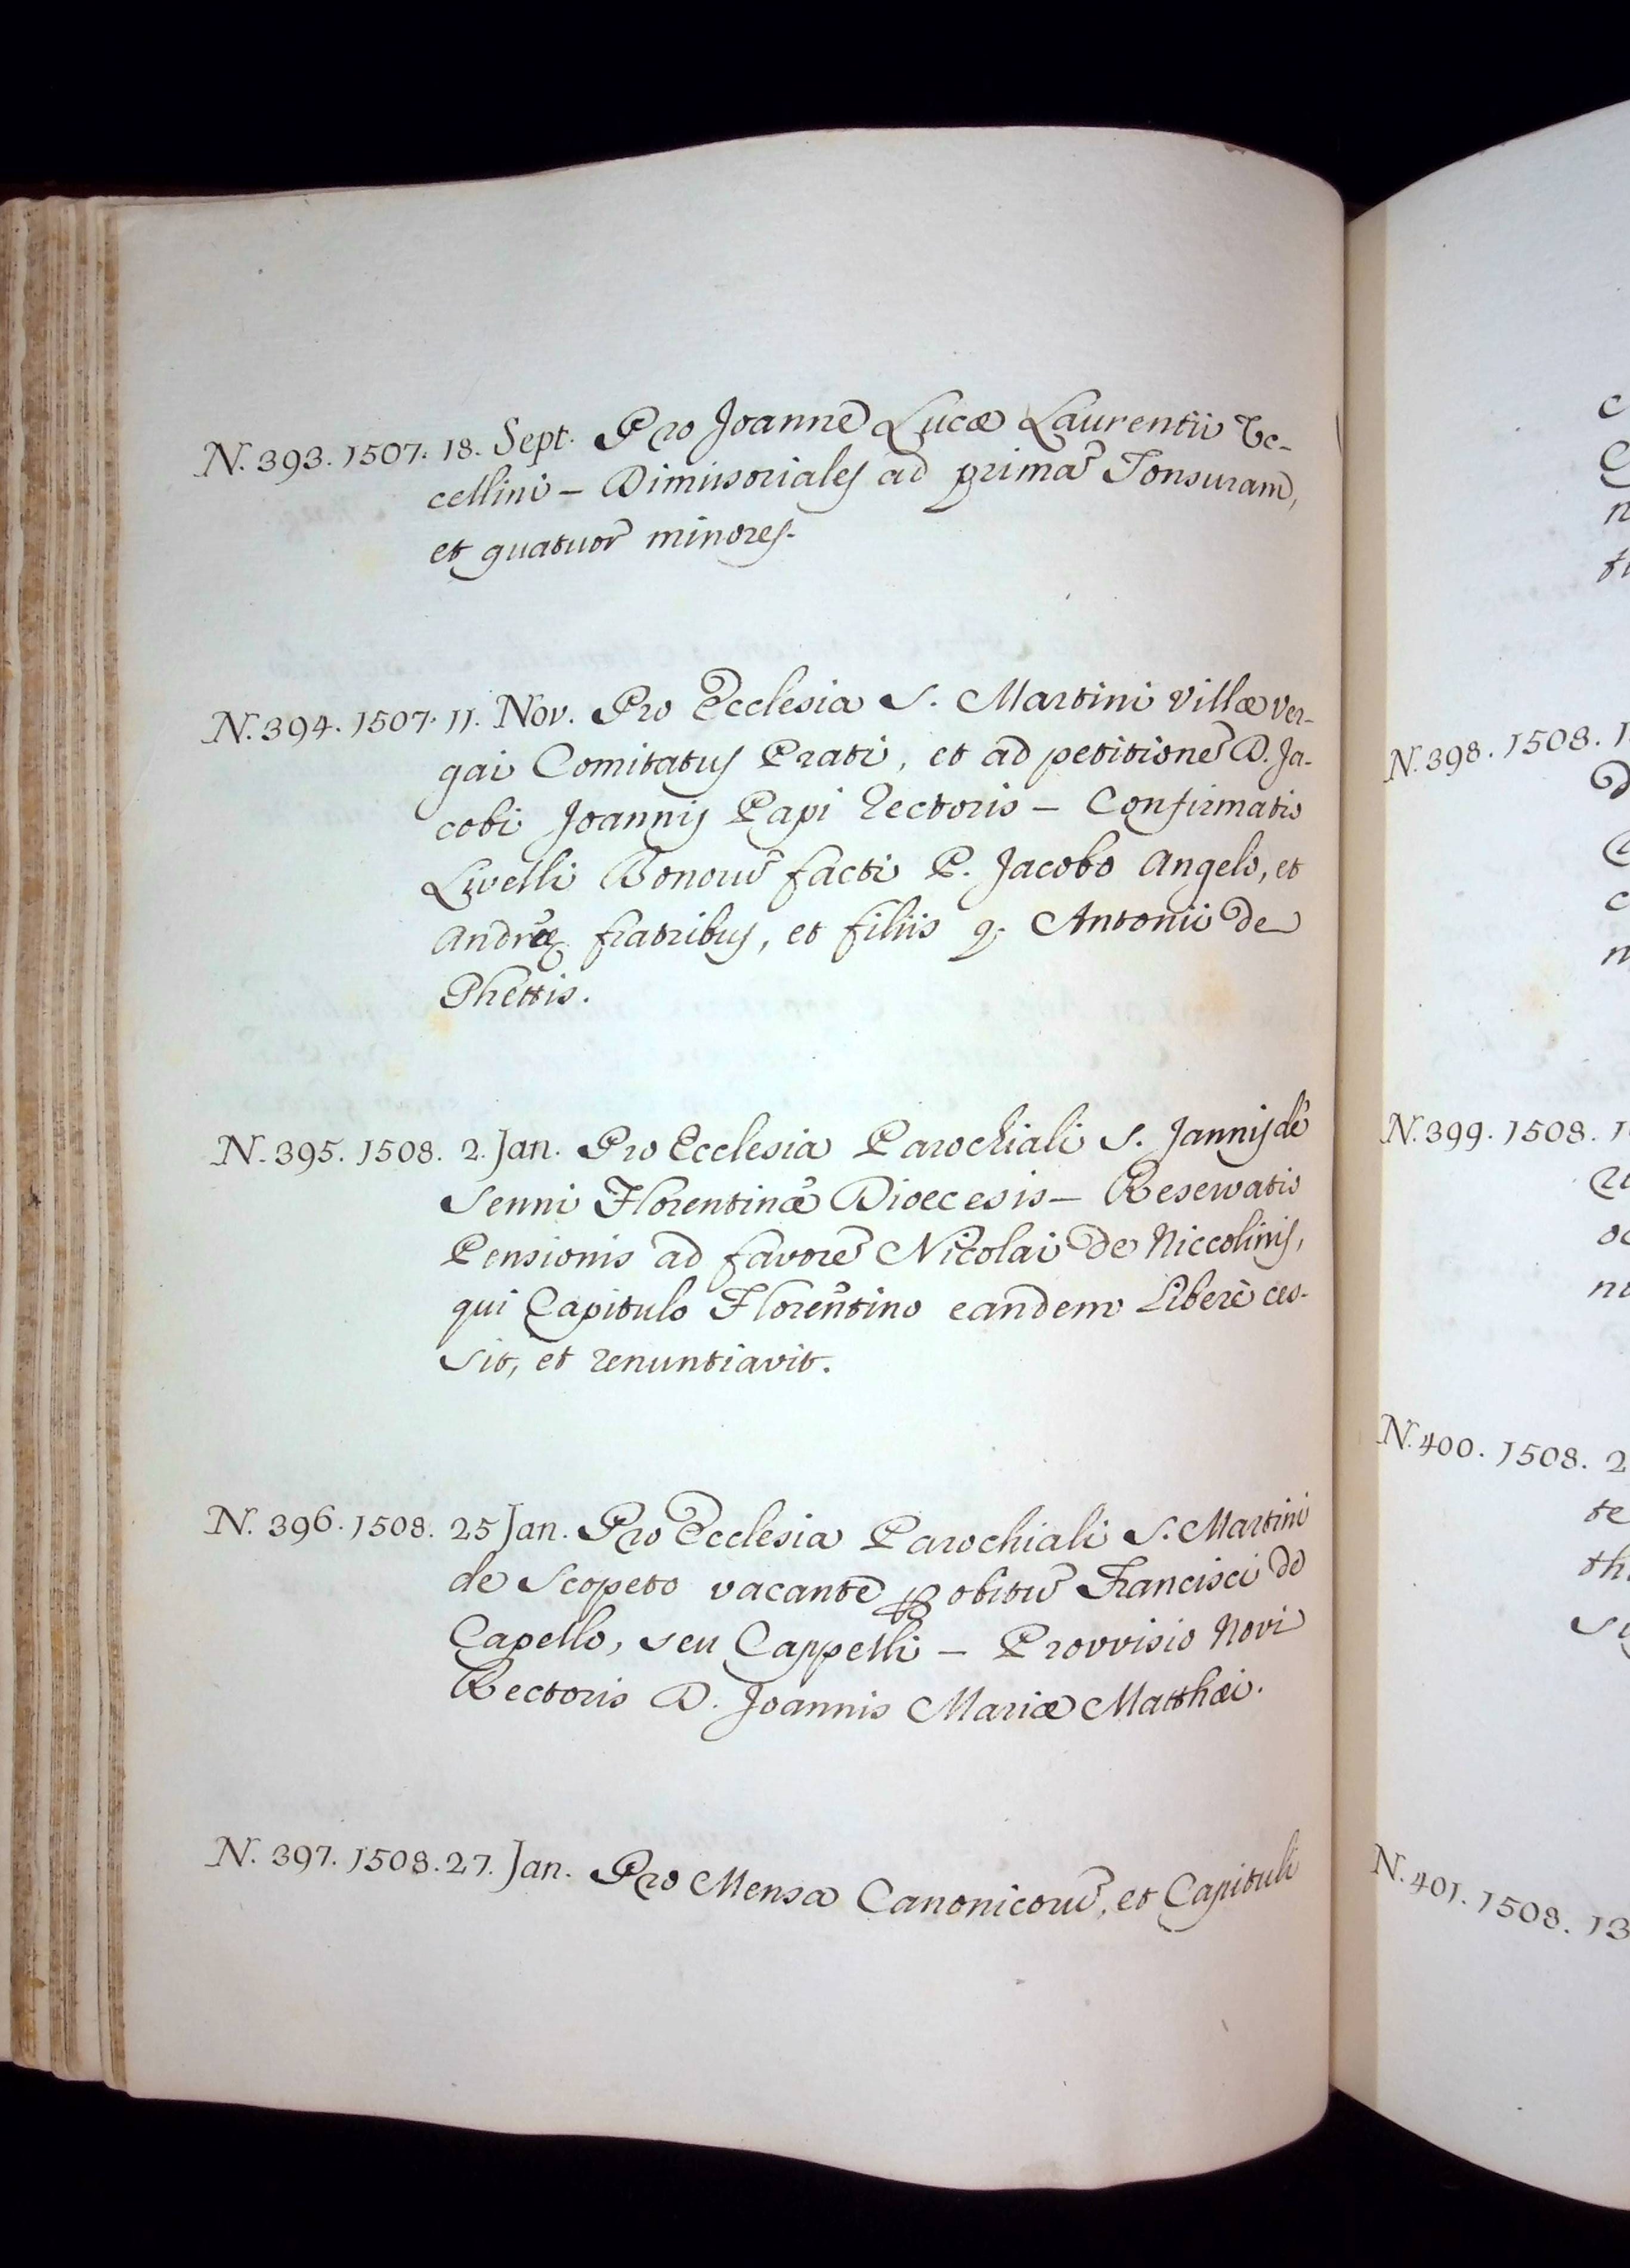 N. 393. 1507. 18. Sept. Pro Joanne Lucæ Laurentii Be-
cellini – Dimissoriales ad primã Tonsuram,
et quatuor minores.
N. 394. 1507. 11. Nov. Pro Ecclesia S. Martini Villæ Ver-
gai Comitatus Prati, et ad petitionẽ D. Ja-
cobi Joannis Papi Rectoris – Confirmatio
Livelli Bonorũ facti P. Jacobo Angelo, et
Andreæ fratribus, et filiis q. Antonii De
Phettis.
N. 395. 1508. 2. Jan. Pro Ecclesia Parochiali S. Jannis de
Senni Florentinæ Dioecesis – Reservatio
Pensionis ad favorẽ Nicolai De Niccolinis,
qui Capitulo Florentino eandem Liberè ces-
sit, et renuntiavit.
N. 396. 1508. 25 Jan. Pro Ecclesia Parochiali S. Martini
de Scopeto vacante ꝑ obitũ Francisci de
Capello, seu Cappelli – Provvisio Novi
Rectoris D. Joannis Mariæ Matthæi.
N. 397. 1508. 27. Jan. Pro Mensa Canonicorũ, et Capituli
N. 398. 1508. 1
N. 399. 1508. 1
N. 400. 1508. 2
te
th
N. 401. 1508. 13